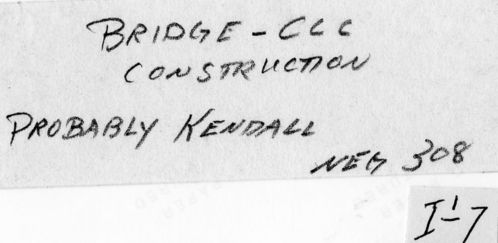 BRIDGE - CCC
CONSTRUCTION
PROBABLY KENDALL
NEG 308
I-7